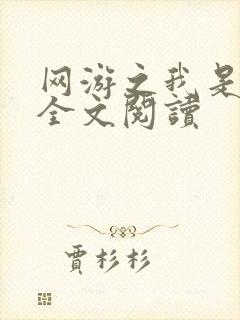 网游之我是
全文閱讀
賈杉杉